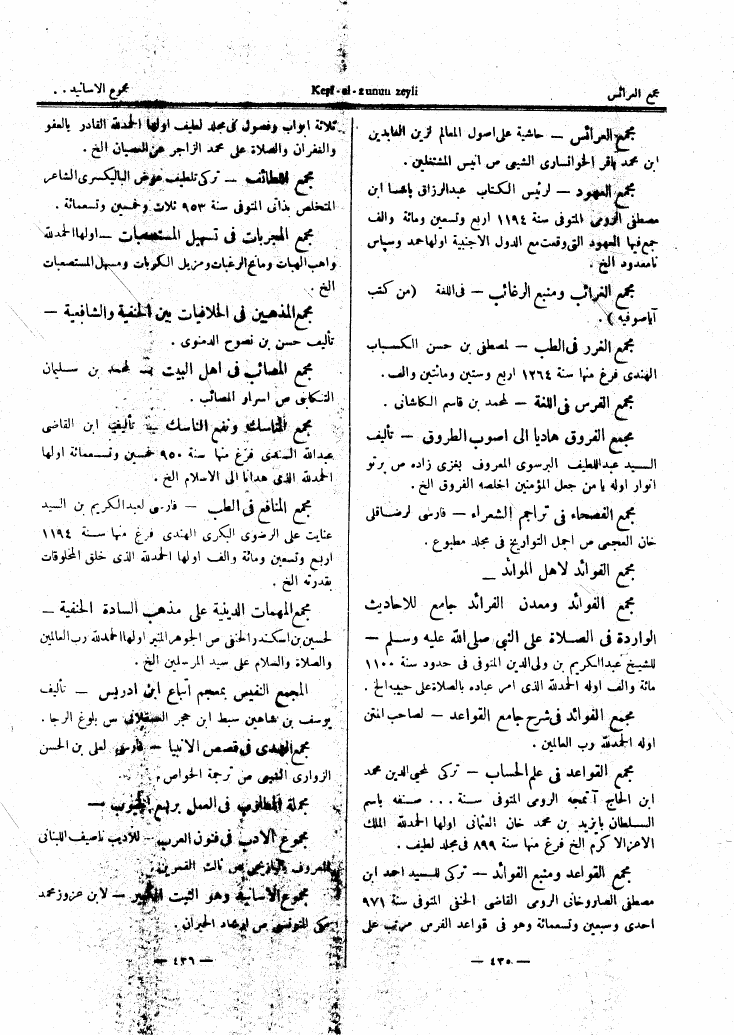 مجمع العرائس
Keşf-el-zunun zeyli
مجموع الاسانيد . .
مجمع العرائس — حاشية على اصول المعالم لزين العابدين
ابن محمد باقر الخوانسارى الشيعى ص انيس المشتغلين .
مجمع العهود — لرئيس الكتاب عبدالرزاق باهشا ابن
مصطفى الرومى المتوفى سنة ١١٩٤ اربع وتسعين ومائة والف
جمع فيها العهود التى وقعت مع الدول الاجنبية اولها حمد وسپاس
نامعدود الخ .
مجمع الغرائب ومنبع الرغائب — فى اللغة (من كتب
آياصوفيه) .
مجمع الغرر فى الطب — لمصطفى بن حسن الكسباب
الهندى فرغ منها سنة ١٢٦٤ اربع وستين ومائتين والف .
مجمع الفرس فى اللغة — لمحمد بن قاسم الكاشانى .
مجمع الفروق هاديا الى اصوب الطروق — تأليف
السيد عبداللطيف البرسوى المعروف بغزى زاده ص پرتو
انوار اوله يا من جعل المؤمنين اخلصه الفروق الخ .
مجمع الفصحاء فى تراجم الشعراء — فارسى لرضا قلى
خان العجمى ص اجمل التواريخ فى مجلد مطبوع .
مجمع الفوائد لاهل الموائد —
مجمع الفوائد ومعدن الفرائد جامع للاحاديث
الواردة فى الصلاة على النبى صلى الله عليه وسلم —
للشيخ عبدالكريم بن ولى الدين المتوفى فى حدود سنة ١١٠٠
مائة والف اوله الحمدلله الذى امر عباده بالصلاة على حبيبه الخ .
مجمع الفوائد فى شرح جامع القواعد — لصاحب المتن
اوله الحمدلله رب العالمين .
مجمع القواعد فى علم الحساب — تركى لمحيى الدين محمد
ابن الحاج آتمجه الرومى المتوفى سنة . . . صنفه باسم
السلطان بايزيد بن محمد خان العثمانى اولها الحمدلله الملك
الاعز الاكرم الخ فرغ منها سنة ٨٩٩ فى مجلد لطيف .
مجمع القواعد ومنبع الفوائد — تركى للسيد احمد ابن
مصطفى الصاروخانى الرومى القاضى الحنفى المتوفى سنة ٩٧١
احدى وسبعين وتسعمائة وهو فى قواعد الفرس مرتب على
— ٤٣٥ —
ثلاثة ابواب وفصول فى مجلد لطيف اولها الحمدلله القادر بالعفو
والغفران والصلاة على محمد الزاجر عن العصيان الخ .
مجمع اللطائف — تركى تلطيف عوض الباليكسرى الشاعر
المتخلص بذاتى المتوفى سنة ٩٥٣ ثلاث وخمسين وتسعمائة .
مجمع المجربات فى تسهيل المستصعبات — اولها الحمدلله
واهب الهبات ومانح الرغبات ومزيل الكربات ومسهل المستصعبات
الخ .
مجمع المذهبين فى الخلافيات بين الحنفية والشافعية —
تأليف حسن بن نصوح الدمنوى .
مجمع المصائب فى اهل البيت — لمحمد بن سليمان
التنكابنى ص اسرار المصائب .
مجمع المناسك ونفع الناسك — تأليف ابن القاضى
عبدالله السندى فرغ منها سنة ٩٥٠ خمسين وتسعمائة اولها
الحمدلله الذى هدانا الى الاسلام الخ .
مجمع المنافع فى الطب — فارسى لعبدالكريم بن السيد
عنايت على الرضوى البكرى الهندى فرغ منها سنة ١١٩٤
اربع وتسعين ومائة والف اولها الحمدلله الذى خلق المخلوقات
بقدرته الخ .
مجمع المهمات الدينية على مذهب السادة الحنفية —
لحسين بن اسكندر الحنفى ص الجوهر المنير اولها الحمدلله رب العالمين
والصلاة والسلام على سيد المرسلين الخ .
المجمع النفيس بمعجم اتباع ابن ادريس — تأليف
يوسف بن شاهين سبط ابن حجر العسقلانى س بلوغ الرجا .
مجمع الهدى فى قصص الانبيا — فارسى لعلى بن الحسن
الزوارى الشيعى ص ترجمة الخواص .
مجملة المطلوب فى العمل بربع الجيوب —
مجموع الادب فى فنون العرب — للاديب ناصيف اللبنانى
المعروف باليازجى ص ثالث القمرين .
مجموع الاسانيد وهو الثبت الكبير — لابن عزوز محمد
مكى التونسى ص ارشاد الحيران .
— ٤٣٦ —